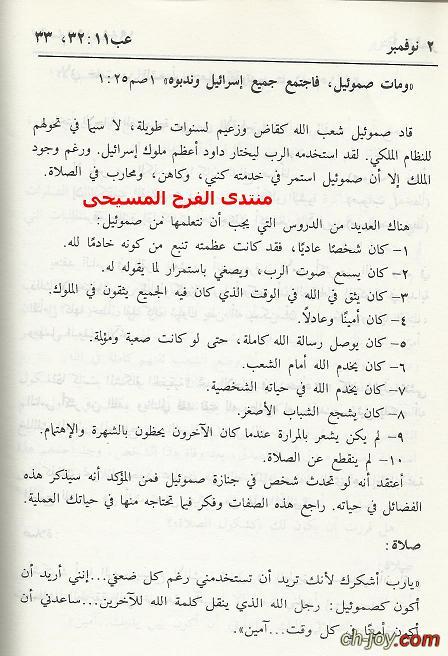 ٢ نوفمبر عب٣٢:١١، ٣٣
«ومات صموئيل، فاجتمع جميع إسرائيل وندبوه» ١صم١:٢٥
قاد صموئيل شعب الله كقاض وزعيم لسنوات طويلة، لا سيما في تحولهم
للنظام الملكي. لقد استخدمه الرب ليختار داود أعظم ملوك إسرائيل. ورغم وجود
الملك إلا أن صموئيل استمر في خدمته كنبي، وكاهن، ومحارب في الصلاة.
منتدى الفرح المسيحى
هناك العديد من الدروس التي يجب أن نتعلمها من صموئيل:
١- كان شخصًا عاديًا، فقد كانت عظمته تنبع من كونه خادمًا لله.
٢- كان يسمع صوت الرب، ويصغي باستمرار لما يقوله له.
٣- كان يثق في الله في الوقت الذي كان فيه الجميع يثقون في الملوك.
٤- كان أمينًا وعادلًا.
٥- كان يوصل رسالة الله كاملة، حتى لو كانت صعبة ومؤلة.
٦- كان يخدم الله أمام الشعب.
٧- كان يخدم الله في حياته الشخصية.
٨- كان يشجع الشباب الأصغر.
٩- لم يكن يشعر بالمرارة عندما كان الآخرون يحظون بالشهرة والإهتمام.
١٠- لم ينقطع عن الصلاة.
أعتقد أنه لو تحدث شخص في جنازة صموئيل فمن المؤكد أنه سيذكر هذه
الفضائل في حياته. راجع هذه الصفات وفكر فيما تحتاجه منها في حياتك العملية.
صلاة:
«يارب أشكرك لأنك تريد أن تستخدمني رغم كل ضعفي...إنني أريد أن
أكون كصموئيل: رجل الله الذي ينقل كلمة الله للآخرين...ساعدني أن
أكون أمينًا في كل وقت...آمين».
ch-joy.com